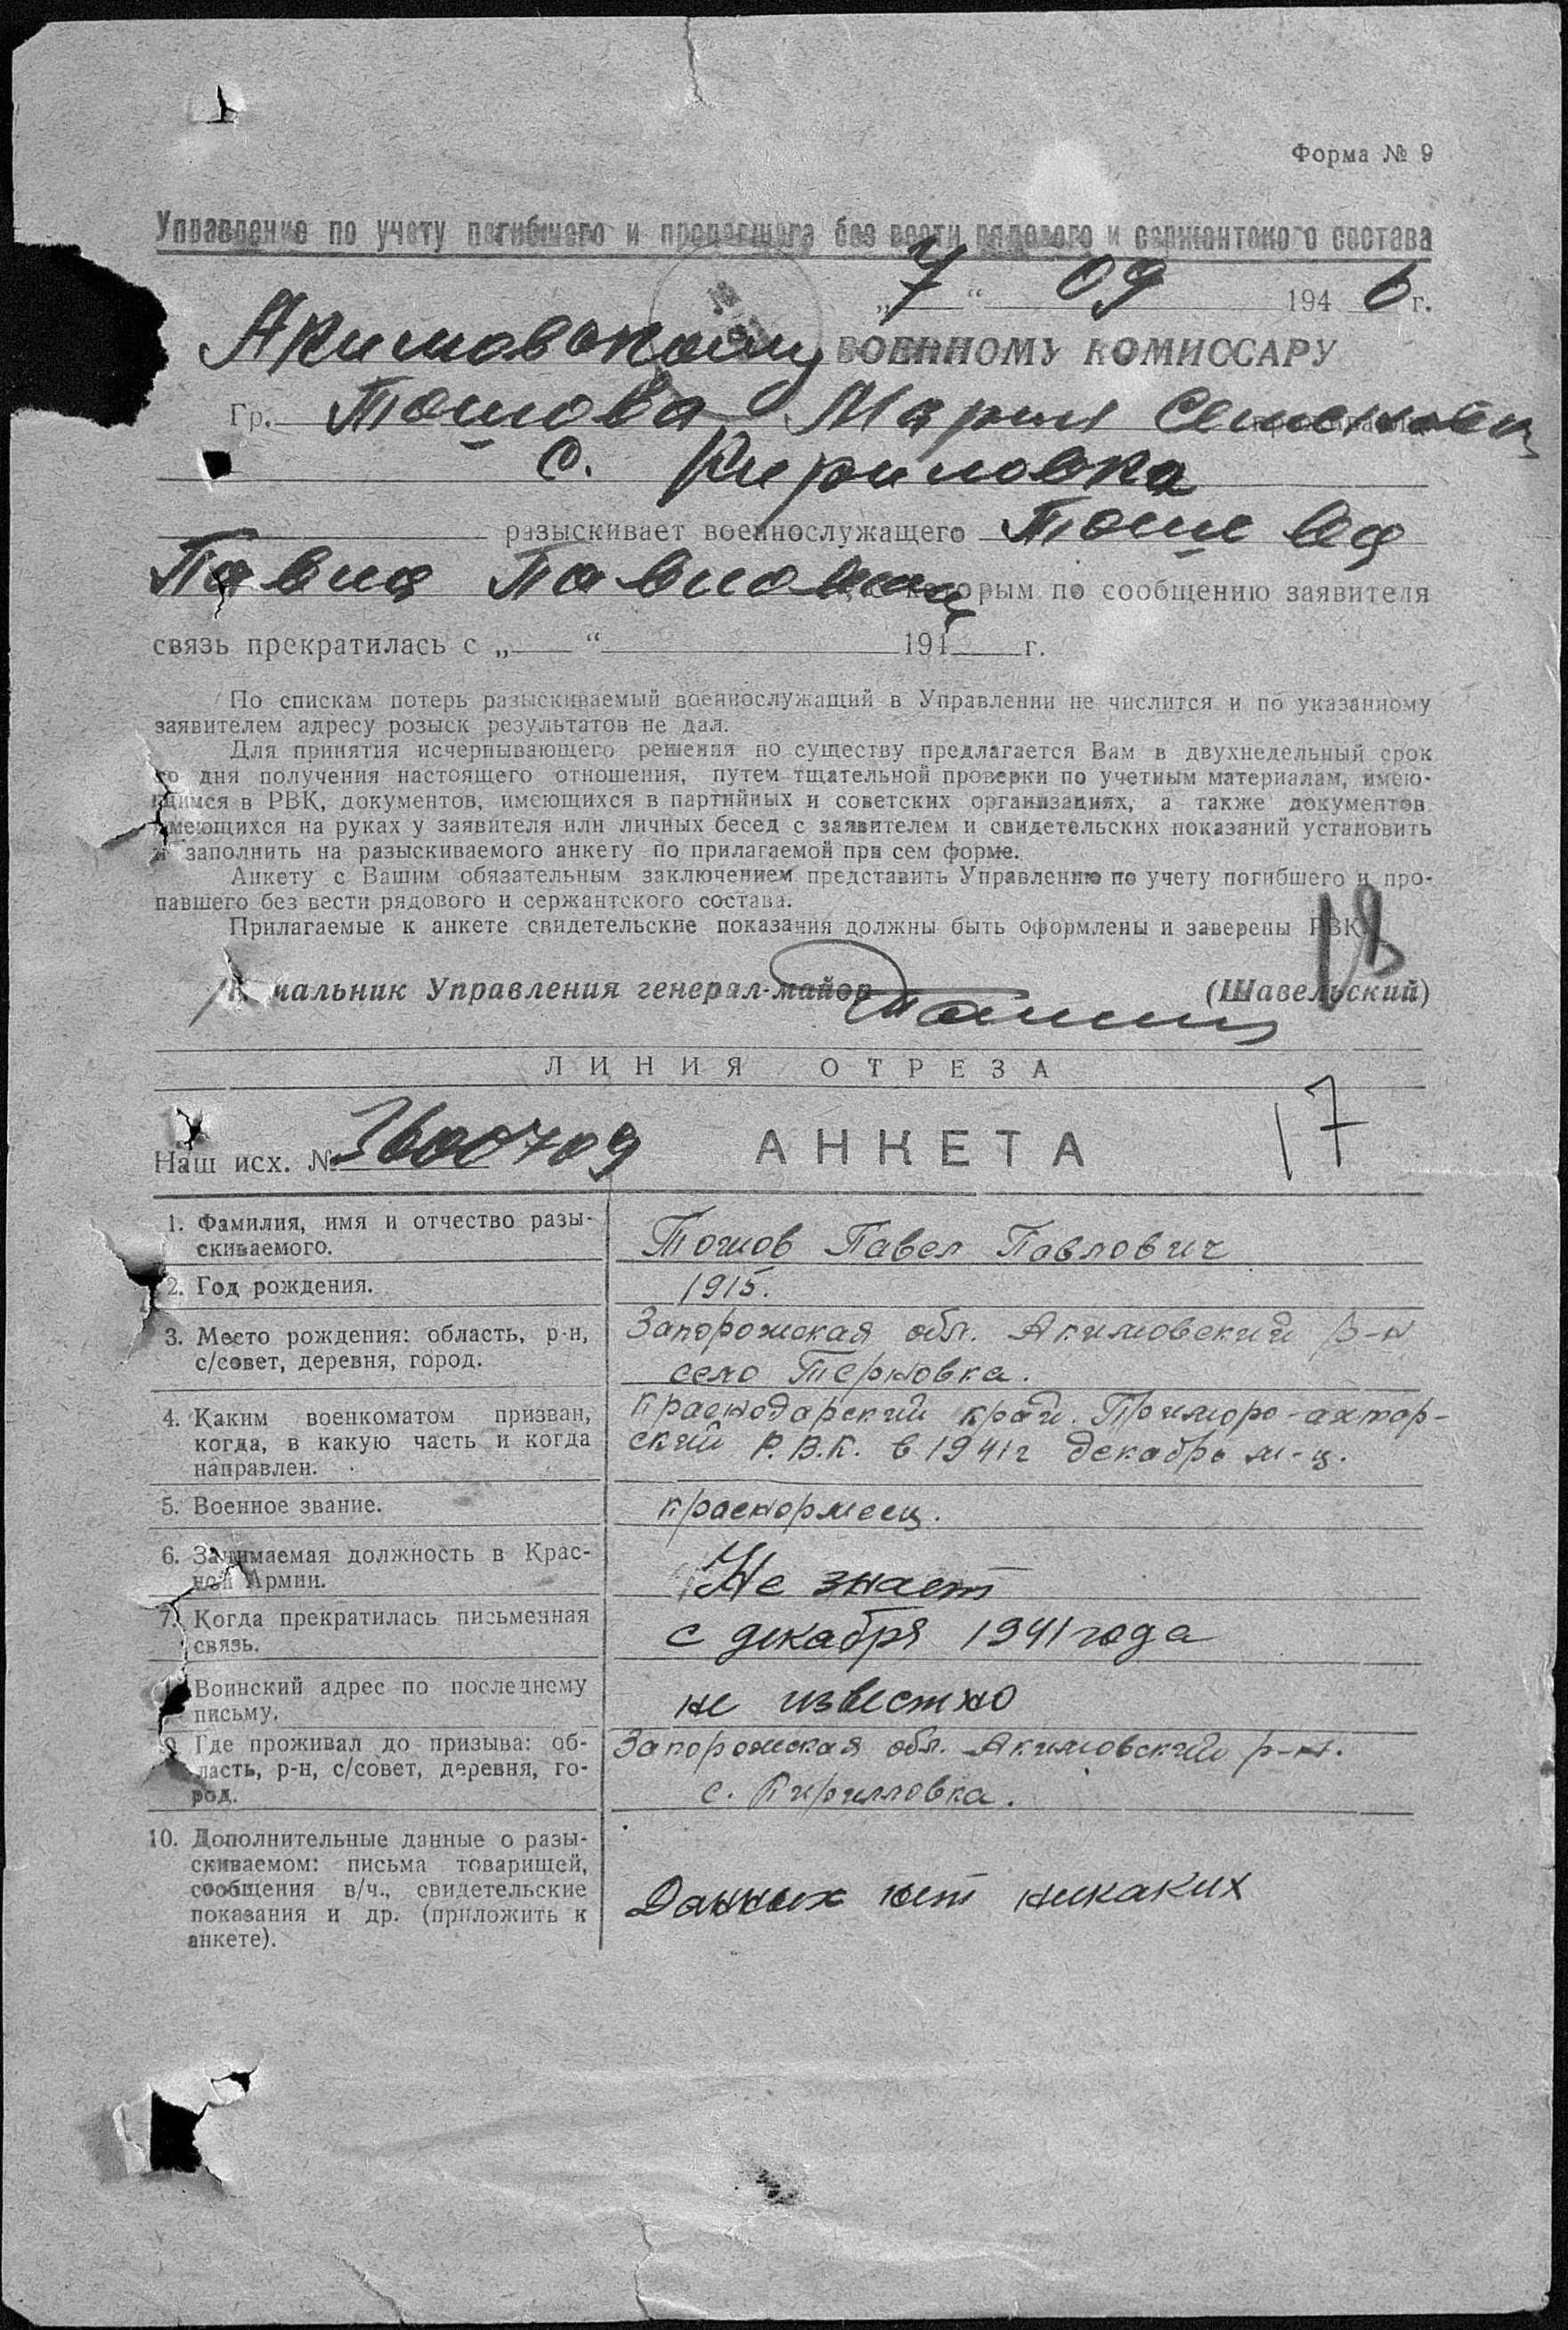 Форма № 9
Управление по учету погибшего и пропавшего без вести рядового и сержантского состава
„7“ 09 1946 г.
Акимовскому ВОЕННОМУ КОМИССАРУ
Гр. Тошова Мария Семеновн
с. Кириловка
разыскивает военнослужащего Тошова
Павла Павловича которым по сообщению заявителя
связь прекратилась с „ “ 194 г.
По спискам потерь разыскиваемый военнослужащий в Управлении не числится и по указанному
заявителем адресу розыск результатов не дал.
Для принятия исчерпывающего решения по существу предлагается Вам в двухнедельный срок
со дня получения настоящего отношения, путем тщательной проверки по учетным материалам, имею-
щимся в РВК, документов, имеющихся в партийных и советских организациях, а также документов
имеющихся на руках у заявителя или личных бесед с заявителем и свидетельских показаний установить
и заполнить на разыскиваемого анкету по прилагаемой при сем форме.
Анкету с Вашим обязательным заключением представить Управлению по учету погибшего и про-
павшего без вести рядового и сержантского состава.
Прилагаемые к анкете свидетельские показания должны быть оформлены и заверены РВК.
18
Начальник Управления генерал-майор (Шавельский)
ЛИНИЯ ОТРЕЗА
17
Наш исх. № 3600709 АНКЕТА
1. Фамилия, имя и отчество разы-
скиваемого.
Тошов Павел Павлович
2. Год рождения.
1915.
3. Место рождения: область, р-н,
с/совет, деревня, город.
Запорожская обл. Акимовский р-н
село Терновка.
4. Каким военкоматом призван,
когда, в какую часть и когда
направлен.
Краснодарский край. Приморо-ахтар-
ский Р.В.К. в 1941г декабрь м-ц.
5. Военное звание.
красноармеец.
6. Занимаемая должность в Крас-
ной Армии.
Не знает
7. Когда прекратилась письменная
связь.
с декабря 1941 года
Воинский адрес по последнему
письму.
не известно
9. Где проживал до призыва: об-
ласть, р-н, с/совет, деревня, го-
род.
Запорожская обл. Акимовский р-н.
с. Кирилловка.
10. Дополнительные данные о разы-
скиваемом: письма товарищей,
сообщения в/ч., свидетельские
показания и др. (приложить к
анкете).
Данных нет никаких